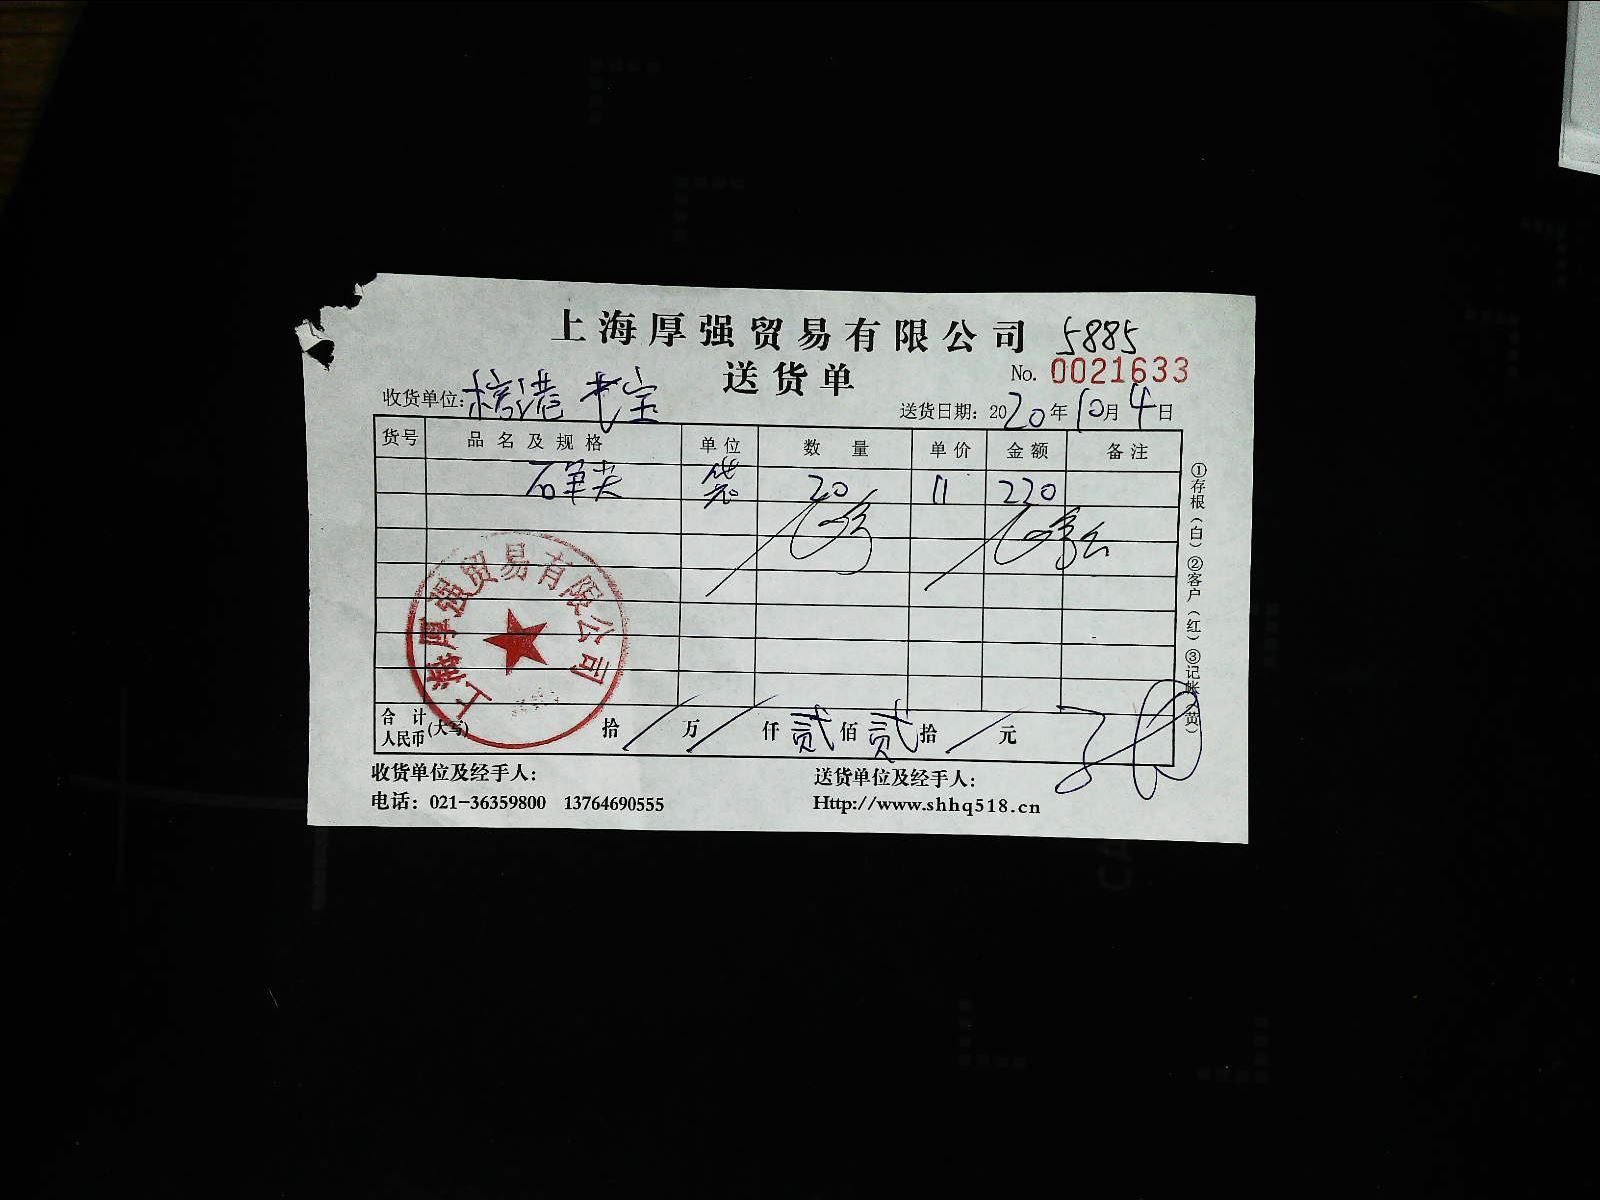 上海厚强贸易有限公司 5885
送货单 No. 0021633
收货单位: 送货日期: 2020年10月4日
货号 品名及规格 单位 数量 单价 金额 备注
石笔尖 袋 20 11 220
上海厚强贸易有限公司
合计人民币(大写) 拾 / 万 / 仟 贰 佰 贰 拾 / 元
收货单位及经手人: 送货单位及经手人:
电话: 021-36359800 13764690555 Http://www.shhq518.cn
①存根(白)②客户(红)③记帐(黄)